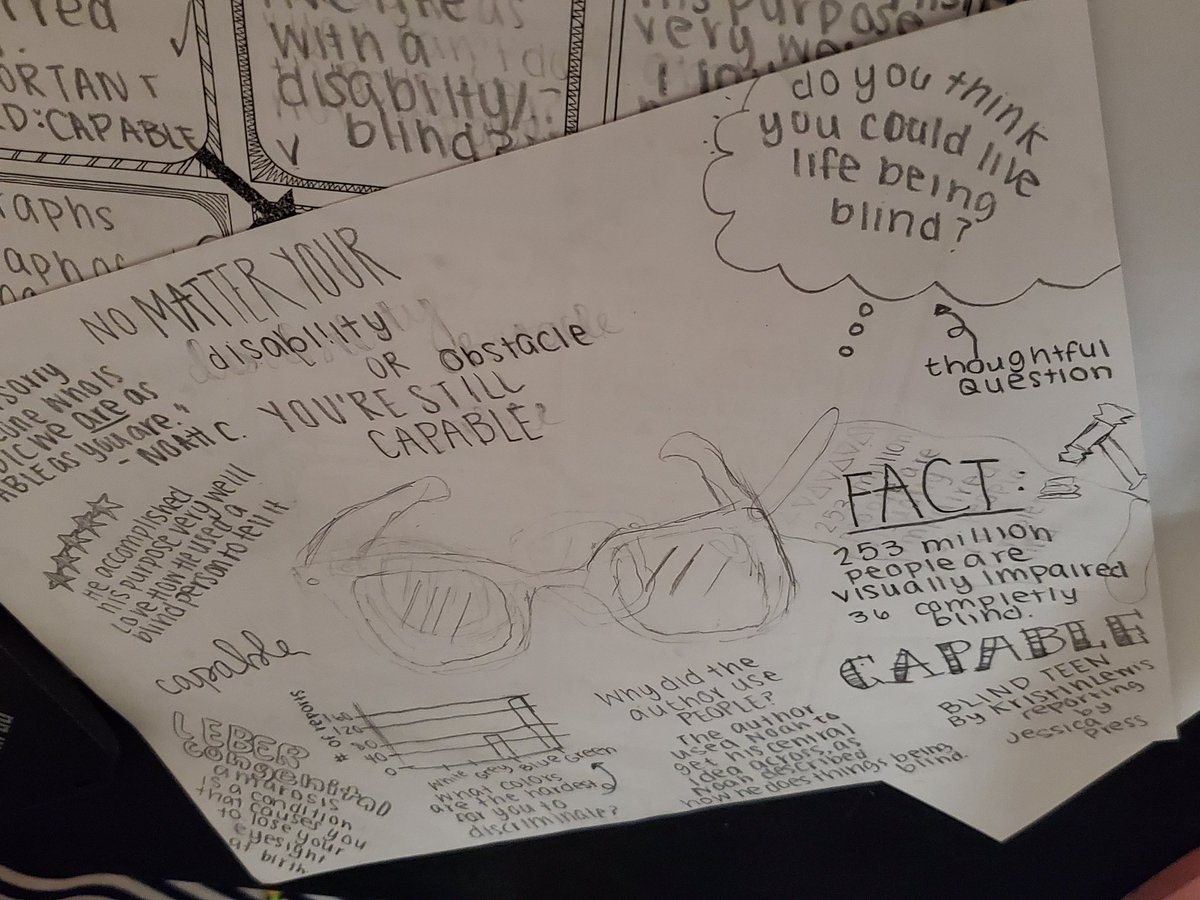 with a
disability/-
blind?
ORTANT
D:CAPABLE
raphs
purpose
very
do you think
you could live
life being
blind?
thoughtful
question
NO MATTER YOUR
disability
OR obstacle
YOU'RE STILL
CAPABLE
sorry
who is
we are as
as you are."
- NOAH C.
He accomplished
his purpose very well!
Love how he used a
blind person to tell it
capable
FACT:
253 million
people are
visually impaired
36 completly
blind.
CAPABLE
BLIND TEEN
By Kristin Lewis
reporting
by
Jessica
Press
LEBER
congenital
amarosis
is a condition
that causes you
to lose your
eyesight
at birth.
# of reports
160
120
80
40
0
White Grey Blue Green
What colors
are the hardest
for you to
discriminate?
Why did the
author use
PEOPLE?
The author
used Noah to
get his central
idea across, as
Noah described
how he does things being
blind.